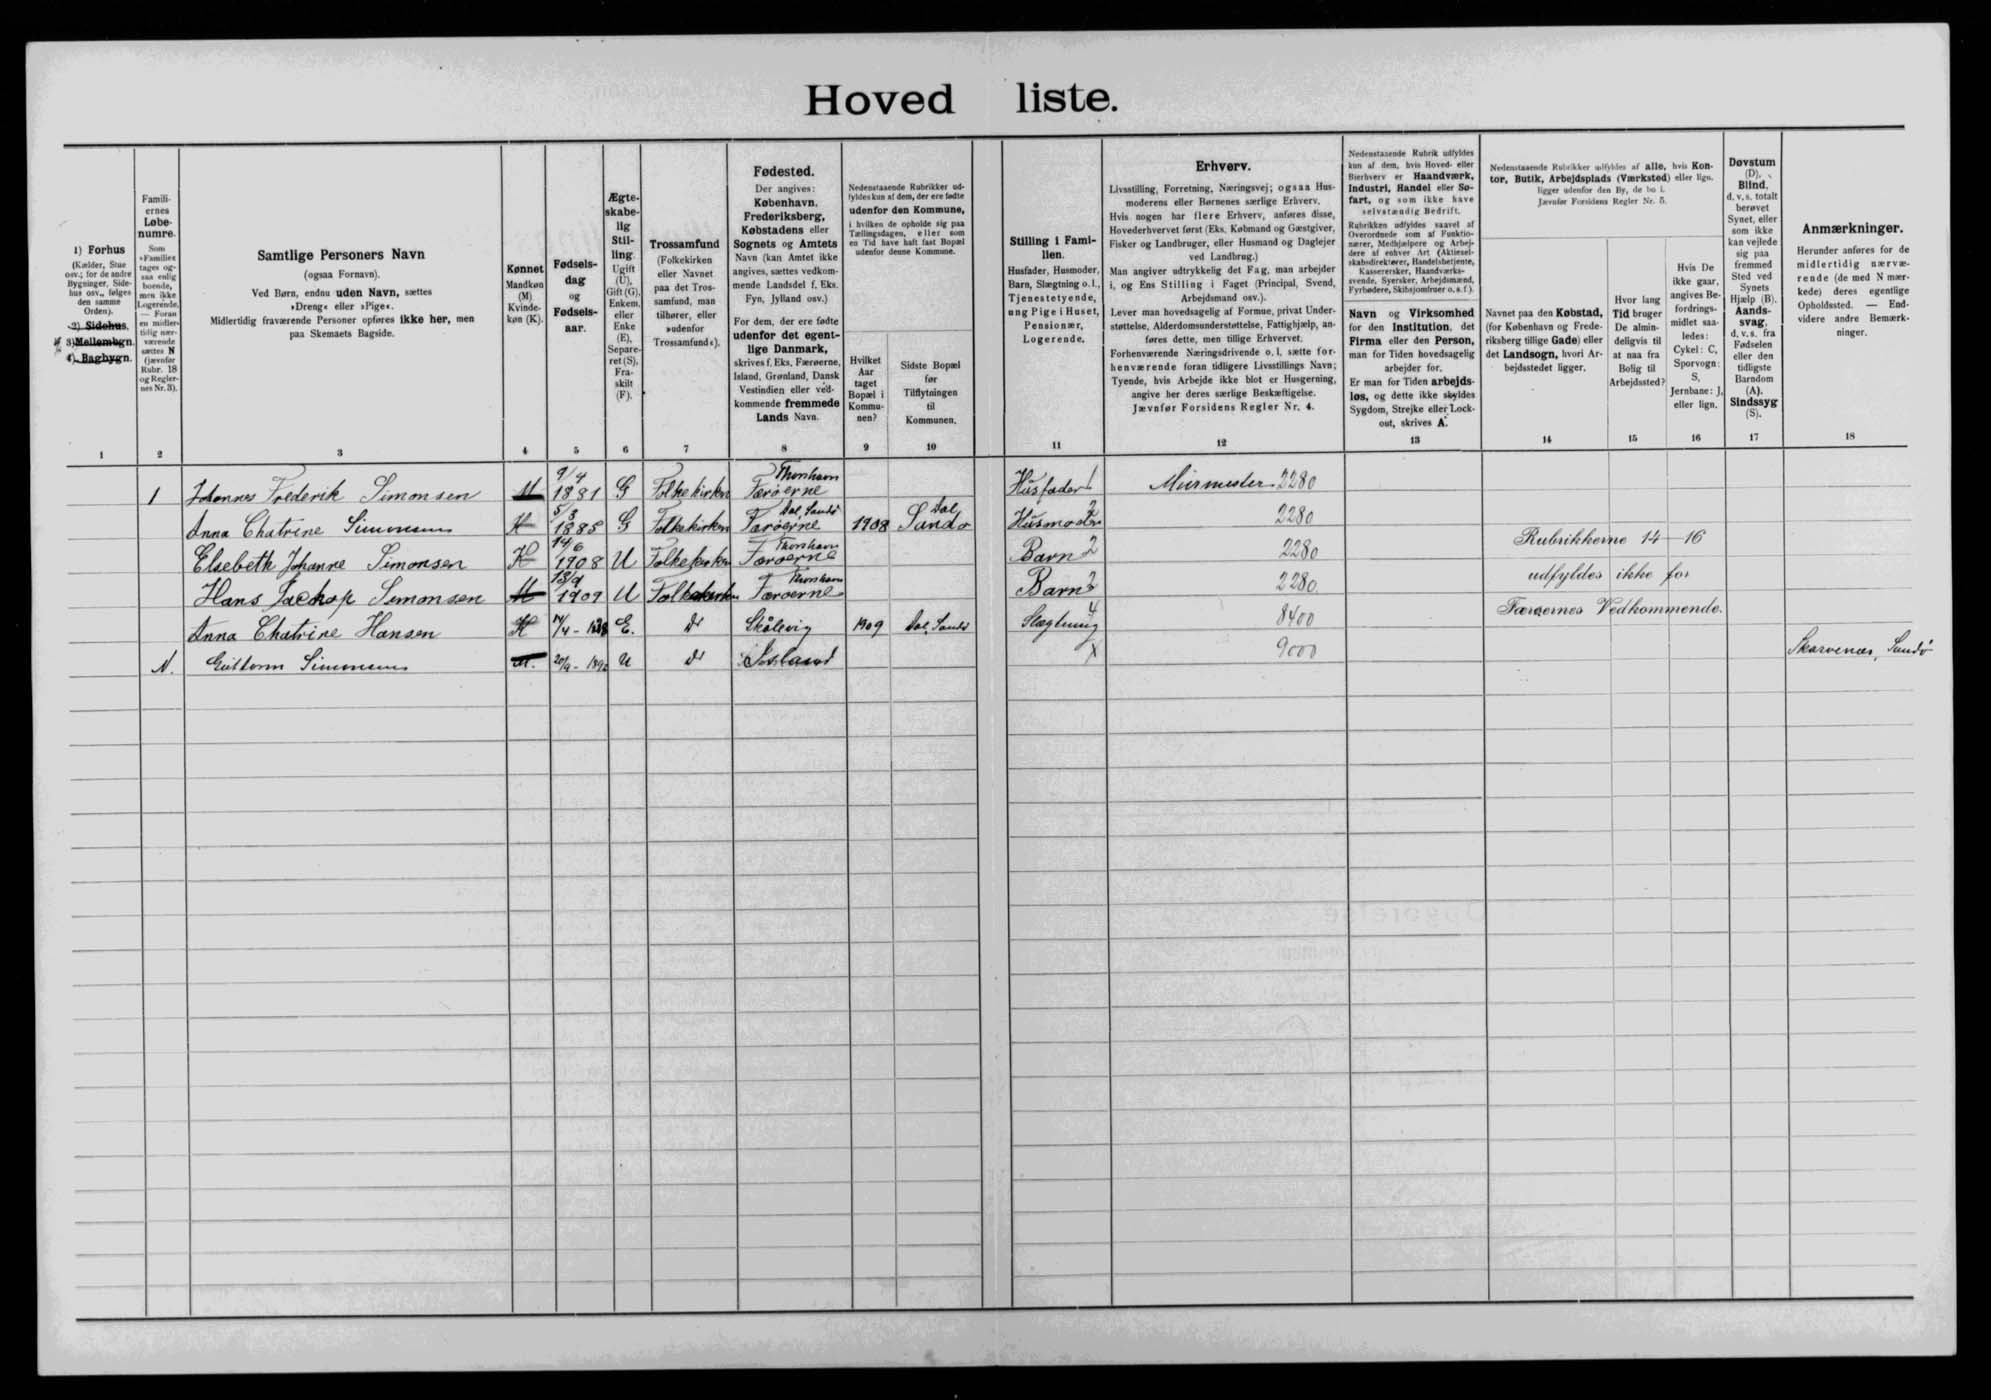 Hoved liste.
1) Forhus
(Kælder, Stue
osv.; for de andre
Bygninger, Side-
hus osv., følges
den samme
Orden).
2) Sidehus,
3) Mellembgn.
4) Bagbygn.
Famili-
ernes
Løbe-
numre.
Som
»Familie«
tages og-
saa enlig
boende,
men ikke
Logerende.
— Foran
en midler-
tidig nær-
værende
sættes N
(jævnfør
Rubr. 18
og Regler-
nes Nr. 3).
Samtlige Personers Navn
(ogsaa Fornavn).
Ved Børn, endnu uden Navn, sættes
»Dreng« eller »Pige«.
Midlertidig fraværende Personer opføres ikke her, men
paa Skemaets Bagside.
Kønnet
Mandkøn
(M)
Kvinde-
køn (K).
Fødsels-
dag
og
Fødsels-
aar.
Ægte-
skabe-
lig
Stil-
ling.
Ugift
(U),
Gift (G),
Enkem.
eller
Enke
(E),
Separe-
ret (S),
Fra-
skilt
(F).
Trossamfund
(Folkekirken
eller Navnet
paa det Tros-
samfund, man
tilhører, eller
»udenfor
Trossamfund«).
Fødested.
Der angives:
København,
Frederiksberg,
Købstadens eller
Sognets og Amtets
Navn (kan Amtet ikke
angives, sættes vedkom-
mende Landsdel f. Eks.
Fyn, Jylland osv.)
For dem, der ere fødte
udenfor det egent-
lige Danmark,
skrives f. Eks. Færøerne,
Island, Grønland, Dansk
Vestindien eller ved-
kommende fremmede
Lands Navn.
Nedenstaaende Rubrikker ud-
fyldes kun af dem, der ere fødte
udenfor den Kommune,
i hvilken de opholde sig paa
Tællingsdagen, eller som
en Tid have haft fast Bopæl
udenfor denne Kommune.
Hvilket
Aar
taget
Bopæl i
Kommu-
nen?
Sidste Bopæl
før
Tilflytningen
til
Kommunen.
Stilling i Fami-
lien.
Husfader, Husmoder,
Barn, Slægtning o. l.,
Tjenestetyende,
ung Pige i Huset,
Pensionær,
Logerende.
Erhverv.
Livsstilling, Forretning, Næringsvej; ogsaa Hus-
moderens eller Børnenes særlige Erhverv.
Hvis nogen har flere Erhverv, anføres disse,
Hovederhvervet først (Eks. Købmand og Gæstgiver,
Fisker og Landbruger, eller Husmand og Daglejer
ved Landbrug.)
Man angiver udtrykkelig det Fag, man arbejder
i, og Ens Stilling i Faget (Principal, Svend,
Arbejdsmand osv.).
Lever man hovedsagelig af Formue, privat Under-
støttelse, Alderdomsunderstøttelse, Fattighjælp, an-
føres dette, men tillige Erhvervet.
Forhenværende Næringsdrivende o. l. sætte for-
henværende foran tidligere Livsstillings Navn;
Tyende, hvis Arbejde ikke blot er Husgerning,
angive her deres særlige Beskæftigelse.
Jævnfør Forsidens Regler Nr. 4.
Nedenstaaende Rubrik udfyldes
kun af dem, hvis Hoved- eller
Bierhverv er Haandværk,
Industri, Handel eller Sø-
fart, og som ikke have
selvstændig Bedrift.
Rubrikken udfyldes saavel af
Overordnede som af Funktio-
nærer, Medhjælpere og Arbej-
dere af enhver Art (Aktiesel-
skabsdirektører, Handelsbetjente,
Kassererersker, Haandværks-
svende, Syersker, Arbejdsmænd,
Fyrbødere, Skibsjomfruer o. s. f.).
Navn og Virksomhed
for den Institution, det
Firma eller den Person,
man for Tiden hovedsagelig
arbejder for.
Er man for Tiden arbejds-
løs, og dette ikke skyldes
Sygdom, Strejke eller Lock-
out, skrives A.
Nedenstaaende Rubrikker udfyldes af alle, hvis Kon-
tor, Butik, Arbejdsplads (Værksted) eller lign.
ligger udenfor den By, de bo i.
Jævnfør Forsidens Regler Nr. 5.
Navnet paa den Købstad,
(for København og Frede-
riksberg tillige Gade) eller
det Landsogn, hvori Ar-
bejdsstedet ligger.
Hvor lang
Tid bruger
De almin-
deligvis til
at naa fra
Bolig til
Arbejdssted?
Hvis De
ikke gaar,
angives Be-
fordrings-
midlet saa-
ledes:
Cykel: C,
Sporvogn:
S,
Jernbane: J,
eller lign.
Døvstum
(D).
Blind,
d. v. s. totalt
berøvet
Synet, eller
som ikke
kan vejlede
sig paa
fremmed
Sted ved
Synets
Hjælp (B).
Aands-
svag,
d. v. s. fra
Fødselen
eller den
tidligste
Barndom
(A).
Sindssyg
(S).
Anmærkninger.
Herunder anføres for de
midlertidig nærvæ-
rende (de med N mær-
kede) deres egentlige
Opholdssted. — End-
videre andre Bemærk-
ninger.
1 2 3 4 5 6 7 8 9 10 11 12 13 14 15 16 17 18
1 Johannes Frederik Simonsen M 9/4 1881 G Folkekirken Thorshavn Færøerne Husfader 1 Murmester 2280
Anna Chatrine Simonsen K 5/3 1885 G Folkekirken Dal, Sandø Færøerne 1908 Dal Sandø Husmoder 2 2280
Elsebeth Johanne Simonsen K 14/6 1908 U Folkekirken Thorshavn Færøerne Barn 2 2280
Hans Jackop Simonsen M 13/9 1909 U Folkekirken Thorshavn Færøerne Barn 2 2280
Rubrikkerne 14-16
udfyldes ikke for
Færøernes Vedkommende.
Anna Chatrine Hansen K E. do Skålevig 1909 Dal, Sandø Slægtning 4 8400
N. Guttorm Simonsen M. 20/9 - U do Island X 9000 Skarvenæs, Sandø